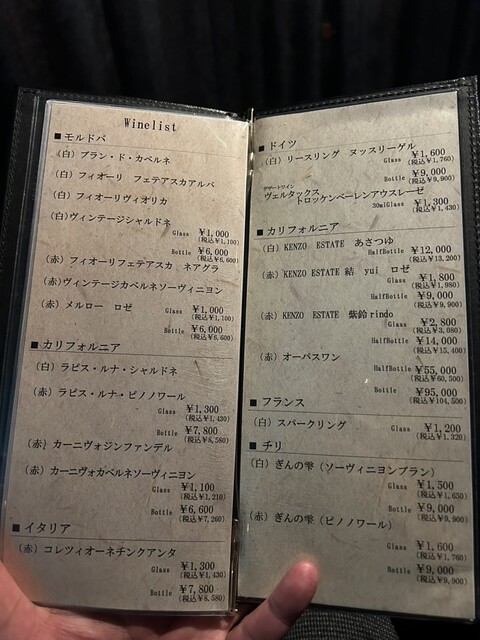 Winelist
■ モルドバ
(白) ブラン・ド・カベルネ
(白) フィオーリ フェテアスカアルバ
(白) フィオーリヴィオリカ
(白)ヴィンテージシャルドネ
Glass ¥1,000
(税込¥1,100)
Bottle ¥6,000
(税込¥6,600)
(赤) フィオーリフェテアスカ ネアグラ
(赤)ヴィンテージカベルネソーヴィニヨン
(赤) メルロー ロゼ
Glass ¥1,000
(税込¥1,100)
Bottle ¥6,000
(税込¥6,600)
■ カリフォルニア
(白) ラピス・ルナ・シャルドネ
(赤) ラピス・ルナ・ピノノワール
Glass ¥1,300
(税込¥1,430)
Bottle ¥7,800
(税込¥8,580)
(赤) カーニヴォジンファンデル
(赤) カーニヴォカベルネソーヴィニヨン
Glass ¥1,100
(税込¥1,210)
Bottle ¥6,600
(税込¥7,260)
■ イタリア
(赤) コレツィオーネチンクアンタ
Glass ¥1,300
(税込¥1,430)
Bottle ¥7,800
(税込¥8,580)
■ ドイツ
(白) リースリング ヌッスリーゲル
Glass ¥1,600
(税込¥1,760)
Bottle ¥9,000
(税込¥9,900)
デザートワイン
ヴェルタックス
トロッケンベーレンアウスレーゼ
30mlGlass ¥1,300
(税込¥1,430)
■ カリフォルニア
(白) KENZO ESTATE あさつゆ
HalfBottle ¥12,000
(税込¥13,200)
(赤) KENZO ESTATE 結 yui ロゼ
Glass ¥1,800
(税込¥1,980)
HalfBottle ¥9,000
(税込¥9,900)
(赤) KENZO ESTATE 紫鈴 rindo
Glass ¥2,800
(税込¥3,080)
HalfBottle ¥14,000
(税込¥15,400)
(赤) オーパスワン
HalfBottle ¥55,000
(税込¥60,500)
Bottle ¥95,000
(税込¥104,500)
■ フランス
(白) スパークリング
Glass ¥1,200
(税込¥1,320)
■ チリ
(白) ぎんの雫 (ソーヴィニヨンブラン)
Glass ¥1,500
(税込¥1,650)
Bottle ¥9,000
(税込¥9,900)
(赤) ぎんの雫 (ピノノワール)
Glass ¥1,600
(税込¥1,760)
Bottle ¥9,000
(税込¥9,900)